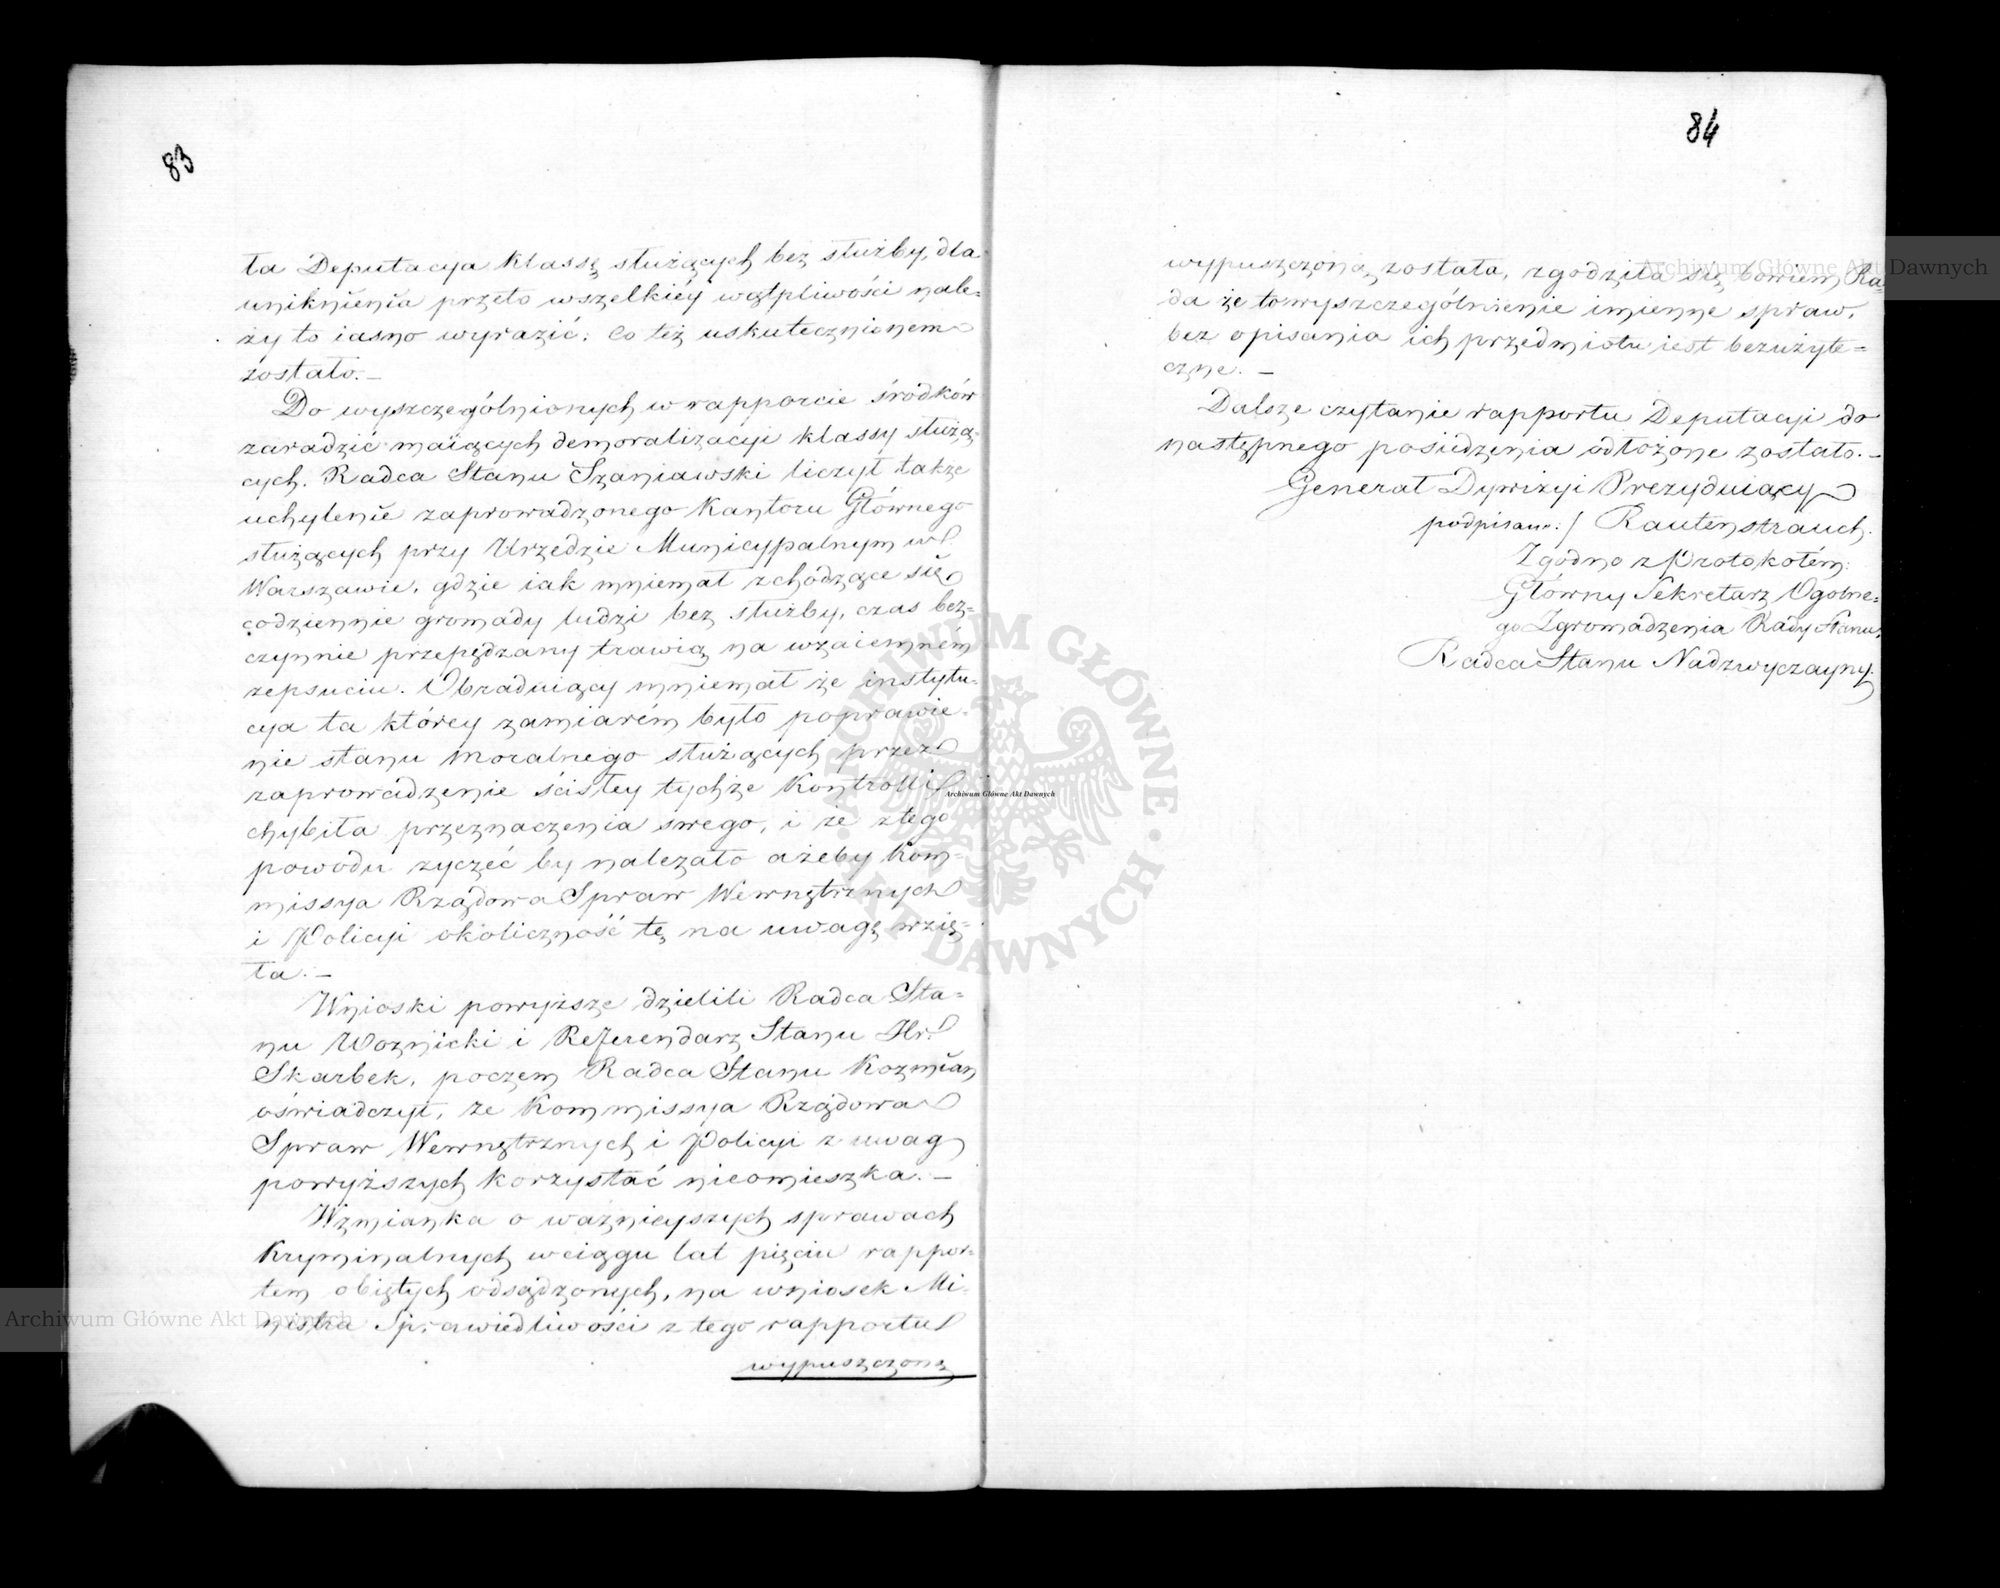 83
ta Deputacya klassę służących bez służby, dla
uniknienia przeto wszelkiéy wątpliwości nale-
ży to iasno wyrazić; co też uskutecznionem
zostało. —
Do wyszczególnionych w rapporcie środków
zaradzić maiących demoralizacyi klassy służą-
cych. Radca Stanu Szaniawski liczył także
uchylenie zaprowadzonego Kantoru Głównego
służących przy Urzędzie Municypalnym w
Warszawie, gdzie iak mniemał zchodzące się
codziennie gromady ludzi bez służby, czas bez-
czynnie przepędzany trawią na wzaiemném
zepsuciu. Obraduiący mniemał że instytu-
cya ta którey zamiarém było poprawie-
nie stanu moralnego służących przez
zaprowadzenie ścisłey tychże Kontrolli
chybiła przeznaczenia swego, i że z tego
powodu zyczéć by należało ażeby Kom-
missya Rządowa Spraw Wewnętrznych
i Policyi okoliczność tę na uwagę wzię-
ła. —
Wnioski powyższe dzielili Radca Sta-
nu Woznicki i Referendarz Stanu Hr.
Skarbek, poczem Radca Stanu Kozmian
oświadczył, że Kommissya Rządowa
Spraw Wewnętrznych i Policyi z uwag
powyższych korzystać nieomieszka. —
Wzmianka o ważnieyszych sprawach
Kryminalnych w ciągu lat pięciu rappor-
tem obiętych odsądzonych, na wniosek Mi-
nistra Sprawiedliwości z tego rapportu
wypuszczoną
84
wypuszczoną została, zgodziła się bowiem Ra-
da że to wyszczególnienie imienne spraw,
bez opisania ich przedmiotu iest bezużyte-
czne. —
Dalsze czytanie rapportu Deputacyi do
następnego posiedzenia odłożone zostało. —
Generał Dywizyi Prezyduiący
podpisano:/ Rautenstrauch.
Zgodno z Protokołém:
Główny Sekretarz Ogolne-
go Zgromadzenia Rady Stanu,
Radca Stanu Nadzwyczayny.
Archiwum Główne Akt Dawnych
Archiwum Główne Akt Dawnych
Archiwum Główne Akt Dawnych
ARCHIWUM GŁÓWNE AKT DAWNYCH